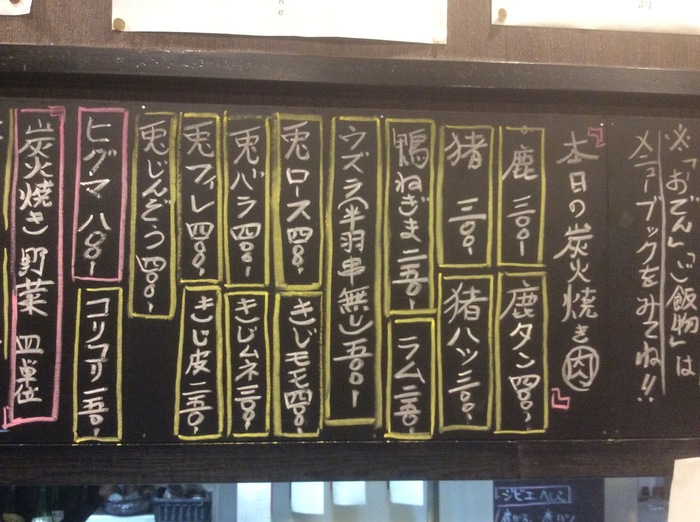 ※「おでん」「ご飯物」は
メニューブックをみてね!!
本日の炭火焼き 肉
鹿 三〇〇-
鹿タン 四〇〇-
猪 三〇〇-
猪ハツ 三〇〇-
鴨ねぎま 二五〇-
ラム 二五〇-
ウズラ(半羽串無し) 五〇〇-
兎ロース 四〇〇-
きじモモ 四〇〇-
兎バラ 四〇〇-
きじムネ 三〇〇-
兎フィレ 四〇〇-
きじ皮 二五〇-
兎じんぞう 四〇〇-
ヒグマ 八〇〇-
コリコリ 一五〇-
炭火焼き 野菜 皿単位
ジビエ